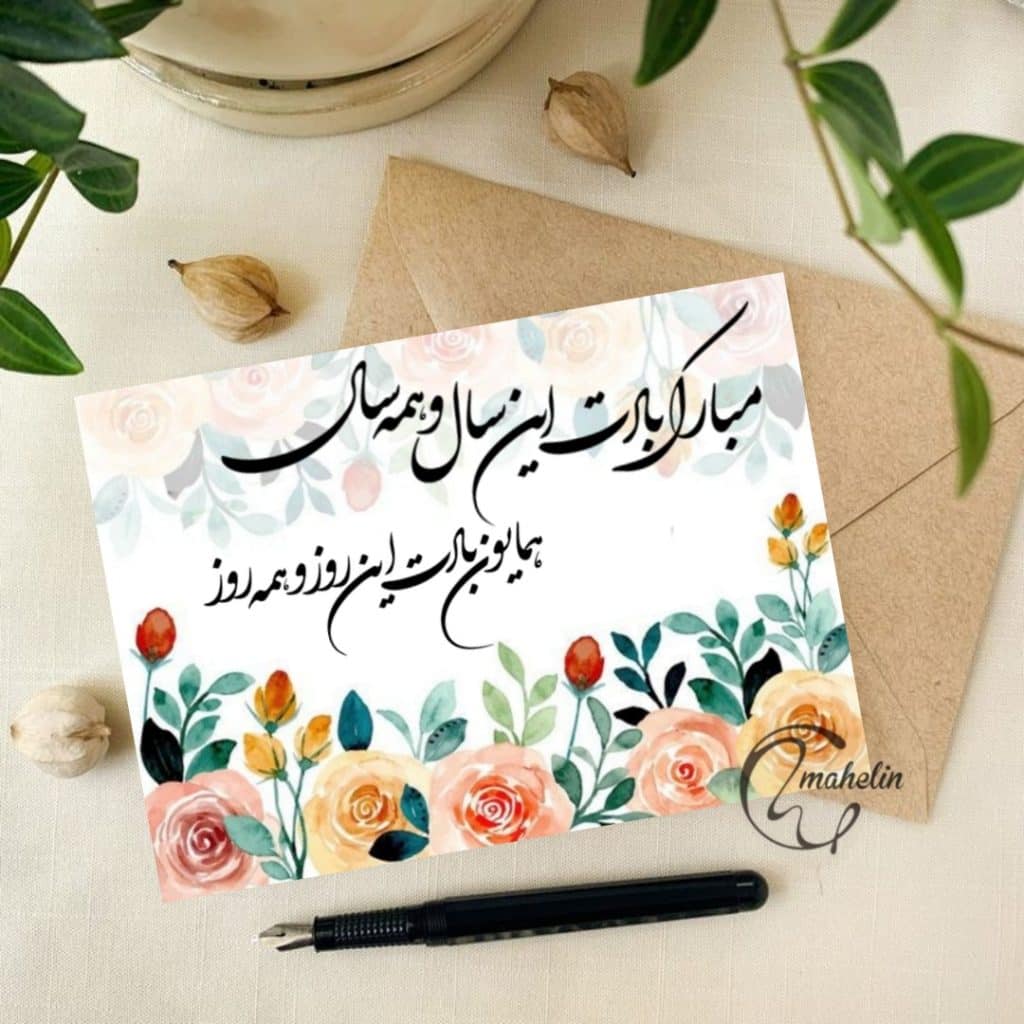 مبارک بادت این سال و همه سال
همایون بادت این روز و همه روز
mahelin